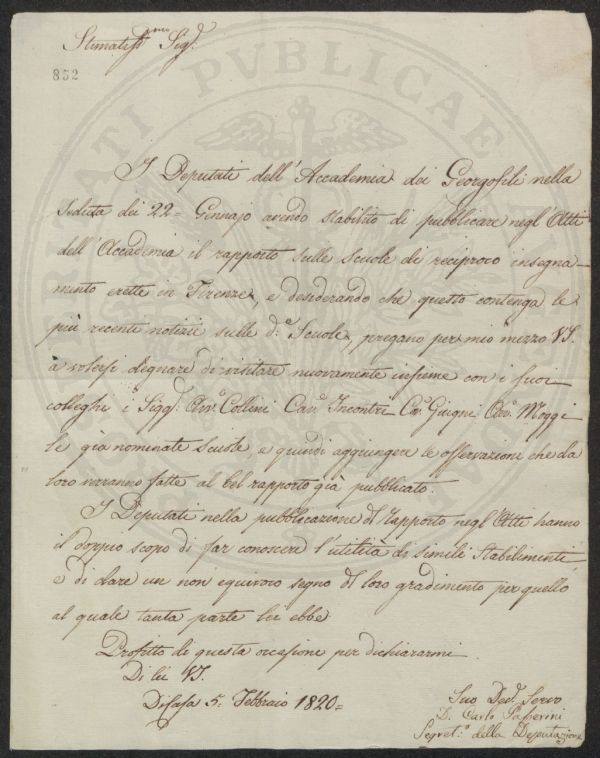 Stimatiss.mo Sig.r
852
I Deputati dell'Accademia dei Georgofili nella
seduta dei 22= Gennajo avendo stabilito di pubblicare negl'Atti
dell'Accademia il rapporto sulle Scuole di reciproco insegna-
mento erette in Firenze, e desiderando che questo contenga le
più recenti notizie sulle d.e Scuole, pregano per mio mezzo VS.
a volersi degnare di visitare nuovamente insieme con i suoi
colleghi i Sigg.ri Avv.o Collini Cav.e Incontri Cav.e Giugni Avv.o Moggi
le già nominate Scuole, e quindi aggiungere le osservazioni che da
loro verranno fatte al bel rapporto già pubblicato.
I Deputati nella pubblicazione del rapporto negl'Atti hanno
il doppio scopo di far conoscere l'utilità di simili Stabilimenti
e di dare un non equivoco segno del loro gradimento per quello
al quale tanta parte lei ebbe.
Profitto di questa occasione per dichiararmi
Di lei VS.
Di Casa 5. Febbraio 1820=
Suo Dev. Servo
D. Carlo Passerini
Segret.o della Deputazione
PVBLICAE